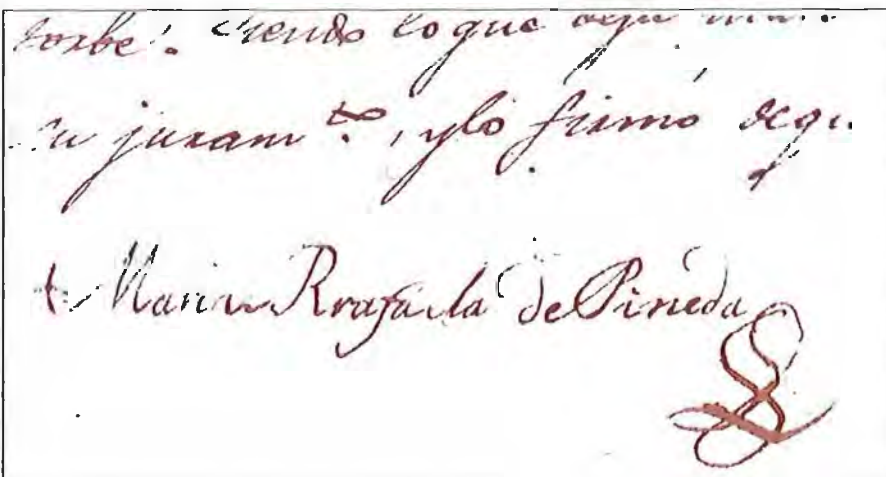 siendo lo que
su juram.to, y lo firmó
Maria Rrafaela de Pineda